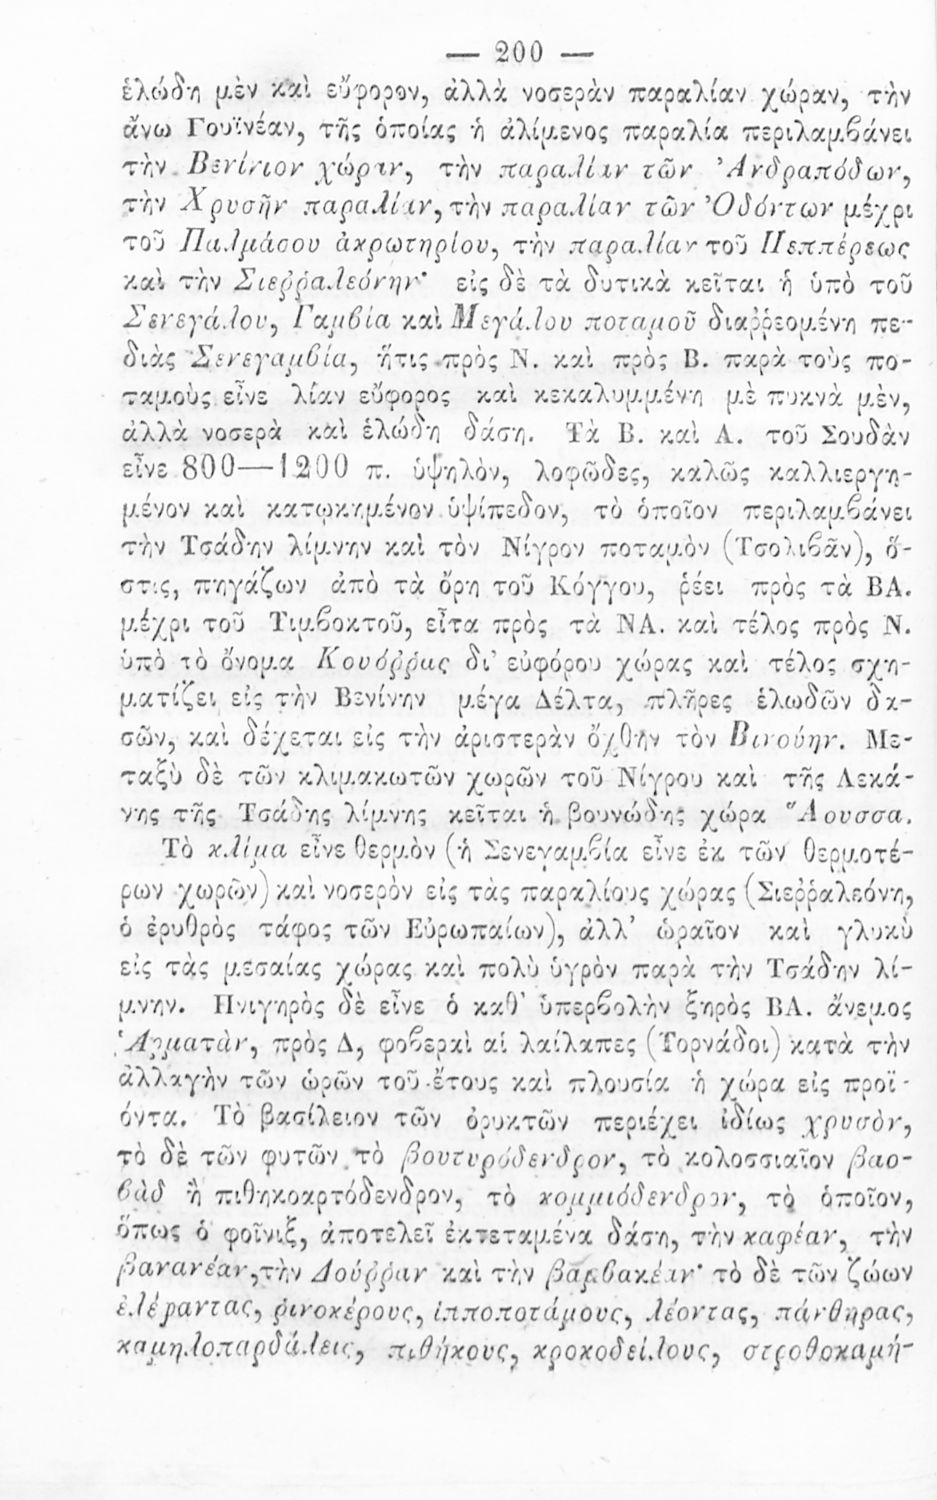 — 200 —
ἑλώδη μὲν καὶ εὔφορον, ἀλλὰ νοσερὰν παραλίαν χώραν, τὴν
ἄνω Γουϊνέαν, τῆς ὁποίας ἡ ἀλίμενος παραλία περιλαμβάνει
τὴν Βενίνιον χώραν, τὴν παραλίαν τῶν Ἀνδραπόδων,
τὴν Χρυσῆν παραλίαν, τὴν παραλίαν τῶν Ὀδόντων μέχρι
τοῦ Παλμάσου ἀκρωτηρίου, τὴν παραλίαν τοῦ Πεππέρεως
καὶ τὴν Σιεῤῥαλεόνην· εἰς δὲ τὰ δυτικὰ κεῖται ἡ ὑπὸ τοῦ
Σενεγάλου, Γαμβία καὶ Μεγάλου ποταμοῦ διαῤῥεομένη πε-
διὰς Σενεγαμβία, ἥτις πρὸς Ν. καὶ πρὸς Β. παρὰ τοὺς πο-
ταμοὺς εἶνε λίαν εὔφορος καὶ κεκαλυμμένη μὲ πυκνὰ μὲν,
ἀλλὰ νοσερὰ καὶ ἑλώδη δάση. Τὰ Β. καὶ Α. τοῦ Σουδὰν
εἶνε 800—1200 π. ὑψηλὸν, λοφῶδες, καλῶς καλλιεργη-
μένον καὶ κατῳκημένον ὑψίπεδον, τὸ ὁποῖον περιλαμβάνει
τὴν Τσάδην λίμνην καὶ τὸν Νίγρον ποταμὸν (Τσολιβᾶν), ὅ-
στις, πηγάζων ἀπὸ τὰ ὄρη τοῦ Κόγγου, ῥέει πρὸς τὰ ΒΑ.
μέχρι τοῦ Τιμβοκτοῦ, εἶτα πρὸς τὰ ΝΑ. καὶ τέλος πρὸς Ν.
ὑπὸ τὸ ὄνομα Κουόῤῥας δι' εὐφόρου χώρας καὶ τέλος σχη-
ματίζει εἰς τὴν Βενίνην μέγα Δέλτα, πλῆρες ἑλωδῶν δα-
σῶν, καὶ δέχεται εἰς τὴν ἀριστερὰν ὄχθην τὸν Βινούην. Με-
ταξὺ δὲ τῶν κλιμακωτῶν χωρῶν τοῦ Νίγρου καὶ τῆς Λεκά-
νης τῆς Τσάδης λίμνης κεῖται ἡ βουνώδης χώρα Ἄουσσα.
Τὸ κλίμα εἶνε θερμὸν (ἡ Σενεγαμβία εἶνε ἐκ τῶν θερμοτέ-
ρων χωρῶν) καὶ νοσερὸν εἰς τὰς παραλίους χώρας (Σιεῤῥαλεόνη,
ὁ ἐρυθρὸς τάφος τῶν Εὐρωπαίων), ἀλλ' ὡραῖον καὶ γλυκὺ
εἰς τὰς μεσαίας χώρας καὶ πολὺ ὑγρὸν παρὰ τὴν Τσάδην λί-
μνην. Πνιγηρὸς δὲ εἶνε ὁ καθ' ὑπερβολὴν ξηρὸς ΒΑ. ἄνεμος
Ἁρματὰν, πρὸς Δ, φοβεραὶ αἱ λαίλαπες (Τορνάδοι) κατὰ τὴν
ἀλλαγὴν τῶν ὡρῶν τοῦ ἔτους καὶ πλουσία ἡ χώρα εἰς προϊ-
όντα. Τὸ βασίλειον τῶν ὀρυκτῶν περιέχει ἰδίως χρυσὸν,
τὸ δὲ τῶν φυτῶν τὸ βουτυρόδενδρον, τὸ κολοσσιαῖον βαο-
βὰδ ἢ πιθηκοαρτόδενδρον, τὸ κομμιόδενδρον, τὸ ὁποῖον,
ὅπως ὁ φοῖνιξ, ἀποτελεῖ ἐκτεταμένα δάση, τὴν καφέαν, τὴν
βανανέαν, τὴν Δούῤῥαν καὶ τὴν βαμβακέαν· τὸ δὲ τῶν ζώων
ἐλέφαντας, ῥινοκέρους, ἱπποποτάμους, λέοντας, πάνθηρας,
καμηλοπαρδάλεις, πιθήκους, κροκοδείλους, στροθοκαμή-